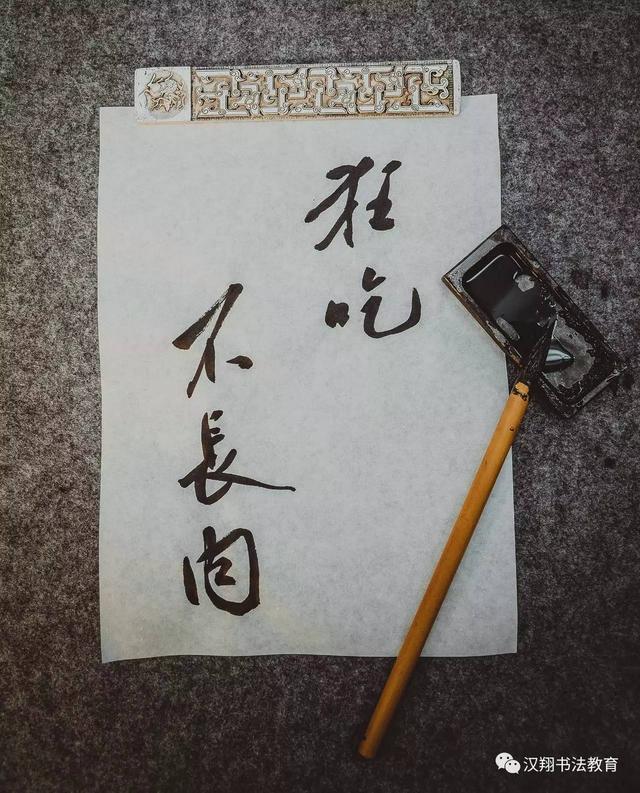 狂吃
不長肉
汉翔书法教育